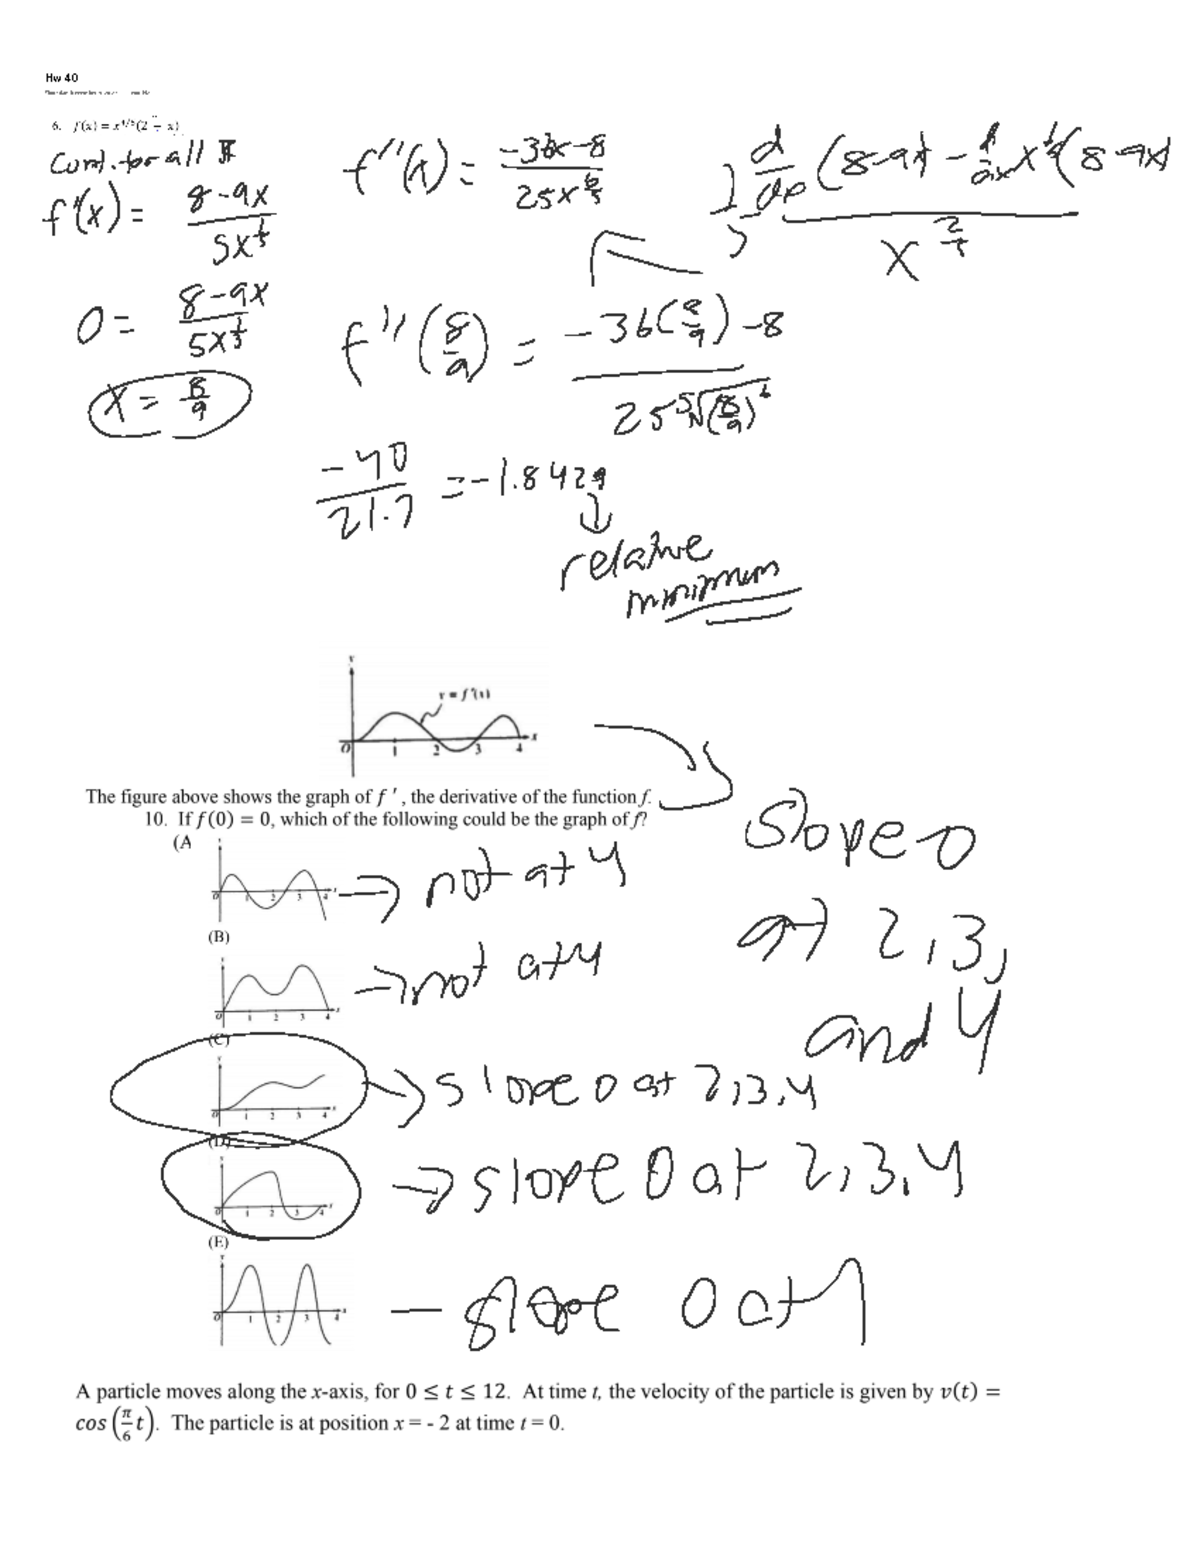 Hw 40
6. f(x) = x^4/5(2 − x)
cont. for all x
f'(x) = (8-9x)/(5x^(1/5))
0 = (8-9x)/(5x^(1/5))
x = 8/9
f''(x) = (-36x-8)/(25x^(6/5))
f''(8/9) = (-36(8/9)-8)/(25 ⁵√(8/9)^6)
-40/21.7 = -1.8429
relative
minimum
y = f'(x)
O 1 2 3 4 x
The figure above shows the graph of f ′ , the derivative of the function f.
10. If f(0) = 0, which of the following could be the graph of f?
slope 0
at 2, 3,
and 4
(A
→ not at 4
(B)
→ not at 4
(C)
→ slope 0 at 2,3,4
(D)
→ slope 0 at 2,3,4
(E)
- slope 0 at 1
A particle moves along the x-axis, for 0 ≤ t ≤ 12. At time t, the velocity of the particle is given by v(t) =
cos (π/6 t). The particle is at position x = - 2 at time t = 0.